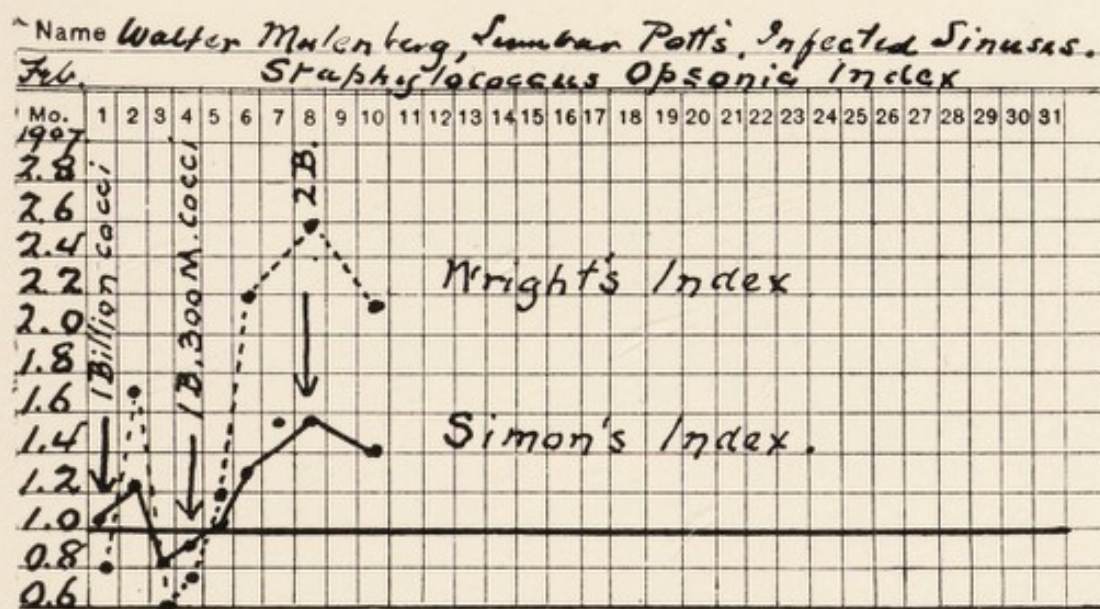 Name Walter Mulenberg, Lumbar Pott's, Infected Sinuses.
Feb. Staphylococcus Opsonic Index
Mo. 1 2 3 4 5 6 7 8 9 10 11 12 13 14 15 16 17 18 19 20 21 22 23 24 25 26 27 28 29 30 31
1907.
2.8
2.6
2.4
2.2
2.0
1.8
1.6
1.4
1.2
1.0
0.8
0.6
1 Billion cocci
1 B, 300 M. cocci
2 B.
Wright's Index
Simon's Index.